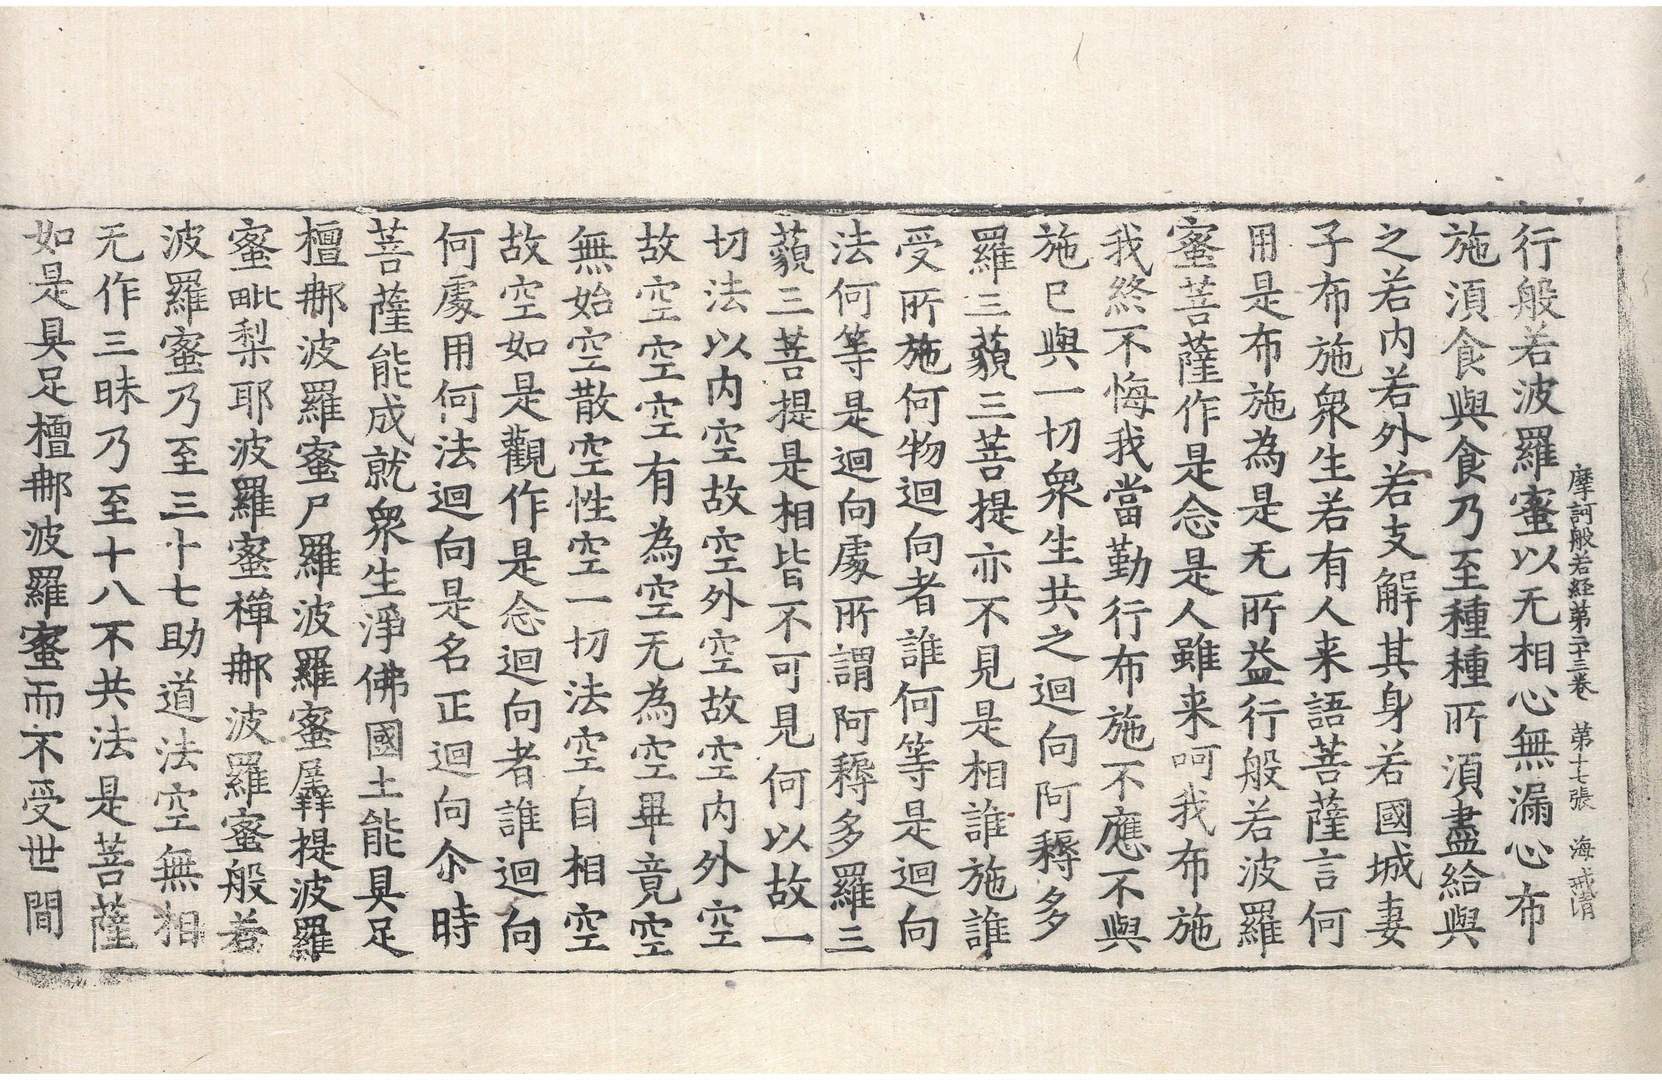 摩訶般若経第二十三巻　第十七張　海戒淸
行般若波羅蜜以无相心無漏心布
施湏食與食乃至種種所湏盡給與
之若内若外若支解其身若國城妻
子布施衆生若有人来語菩薩言何
用是布施為是无所益行般若波羅
蜜菩薩作是念是人雖来呵我布施
我終不悔我當勤行布施不應不與
施已與一切衆生共之迴向阿耨多
羅三藐三菩提亦不見是相誰施誰
受所施何物迴向者誰何等是迴向
法何等是迴向處所謂阿耨多羅三
藐三菩提是相皆不可見何以故一
切法以内空故空外空故空内外空
故空空空空有為空无為空畢竟空
無始空散空性空一切法空自相空
故空如是觀作是念迴向者誰迴向
何處用何法迴向是名正迴向尒時
菩薩能成就衆生淨佛國土能具足
檀𨙻波羅蜜尸羅波羅蜜羼提波羅
蜜毗梨耶波羅蜜禪𨙻波羅蜜般若
波羅蜜乃至三十七助道法空無相
无作三昧乃至十八不共法是菩薩
如是具足檀𨙻波羅蜜而不受世間